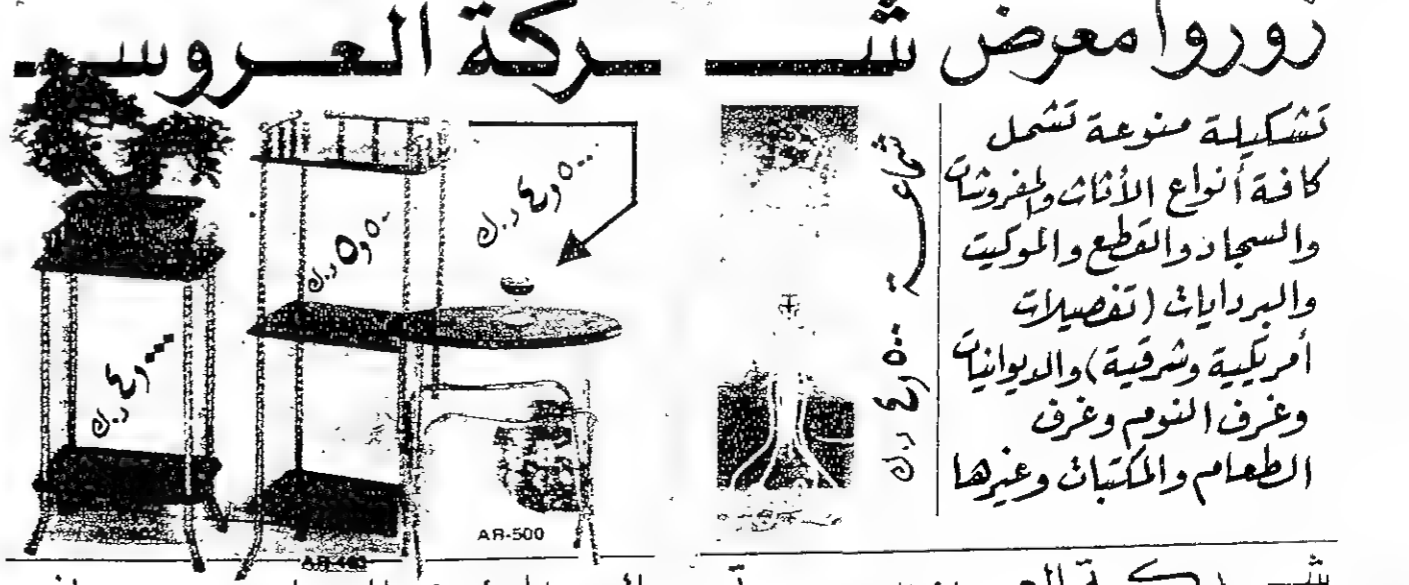 زوروا معرض شركة العروسـ
تشكيلة منوعة تشمل
كافة أنواع الأثاث والمفروشات
والسجاد والقطع والموكيت
والبردايات (تفصيلات
أمريكية وشرقية) والديوانيات
وغرف النوم وغرف
الطعام والمكتبات وغيرها
شماعة ٤٫٥٠٠ د.ك
٤٫٥٠٠ د.ك
٥٫٥٠٠ د.ك
٤٫٠٠٠ د.ك
AR-500
شركة